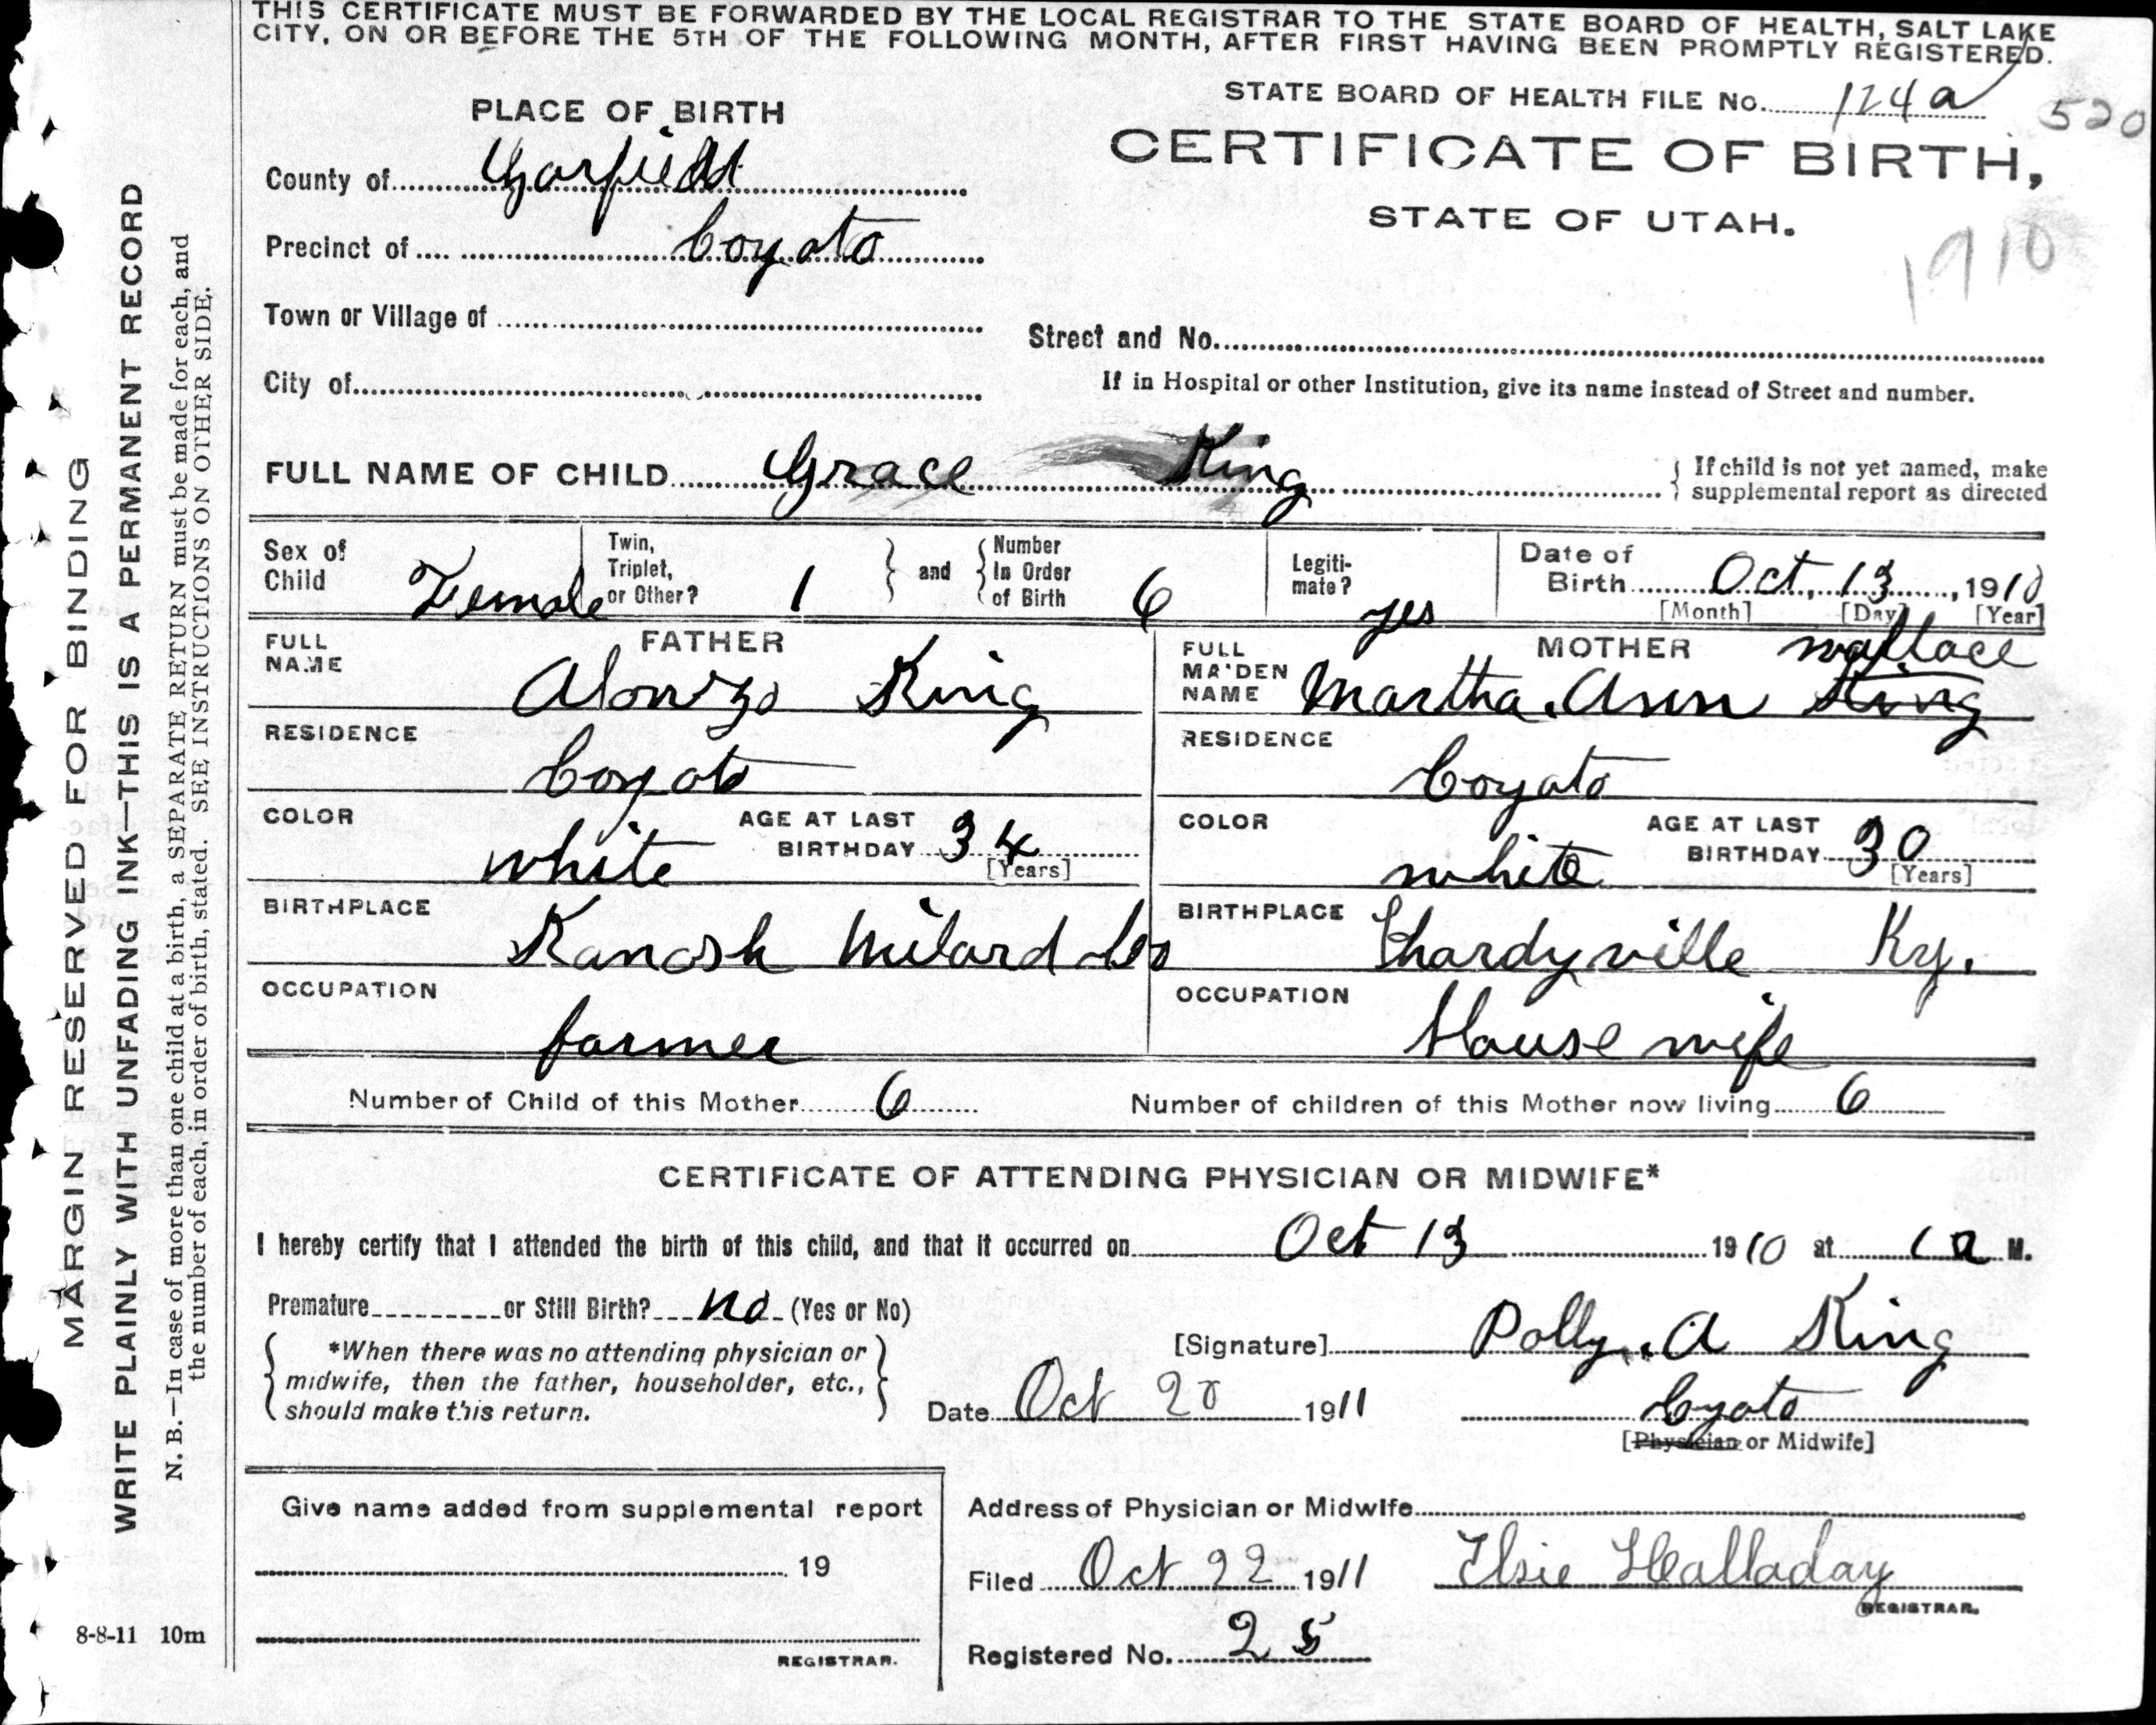 THIS CERTIFICATE MUST BE FORWARDED BY THE LOCAL REGISTRAR TO THE STATE BOARD OF HEALTH, SALT LAKE
CITY, ON OR BEFORE THE 5TH OF THE FOLLOWING MONTH, AFTER FIRST HAVING BEEN PROMPTLY REGISTERED.
STATE BOARD OF HEALTH FILE No. 124a
520
PLACE OF BIRTH
CERTIFICATE OF BIRTH,
STATE OF UTAH.
1910
County of Garfield
Precinct of Coyoto
Town or Village of
Street and No.
City of
If in Hospital or other Institution, give its name instead of Street and number.
FULL NAME OF CHILD Grace King
If child is not yet named, make
supplemental report as directed
Sex of Child Female
Twin, Triplet, or Other? 1
and
Number In Order of Birth 6
Legiti-mate? yes
Date of Birth Oct, 13, 1910
[Month] [Day] [Year]
FATHER
FULL NAME Alonzo King
RESIDENCE
Coyoto
COLOR white
AGE AT LAST BIRTHDAY 34
[Years]
BIRTHPLACE
Kanosh Milard Co
OCCUPATION
farmer
MOTHER
FULL MAIDEN NAME Martha. Ann King wallace
RESIDENCE
Coyoto
COLOR white
AGE AT LAST BIRTHDAY 30
[Years]
BIRTHPLACE
Hardyville Ky.
OCCUPATION
House wife
Number of Child of this Mother 6
Number of children of this Mother now living 6
CERTIFICATE OF ATTENDING PHYSICIAN OR MIDWIFE*
I hereby certify that I attended the birth of this child, and that it occurred on Oct 13 1910 at 1 a M.
Premature or Still Birth? No (Yes or No)
*When there was no attending physician or
midwife, then the father, householder, etc.,
should make this return.
[Signature] Polly. A King
Date Oct 20 1911
Cyoto
[Physician or Midwife]
Give name added from supplemental report
19
REGISTRAR.
Address of Physician or Midwife
Filed Oct 22 1911
Elsie Halladay
REGISTRAR.
Registered No. 25
MARGIN RESERVED FOR BINDING
WRITE PLAINLY WITH UNFADING INK—THIS IS A PERMANENT RECORD
N. B.—In case of more than one child at a birth, a SEPARATE RETURN must be made for each, and
the number of each, in order of birth, stated. SEE INSTRUCTIONS ON OTHER SIDE.
8-8-11 10m